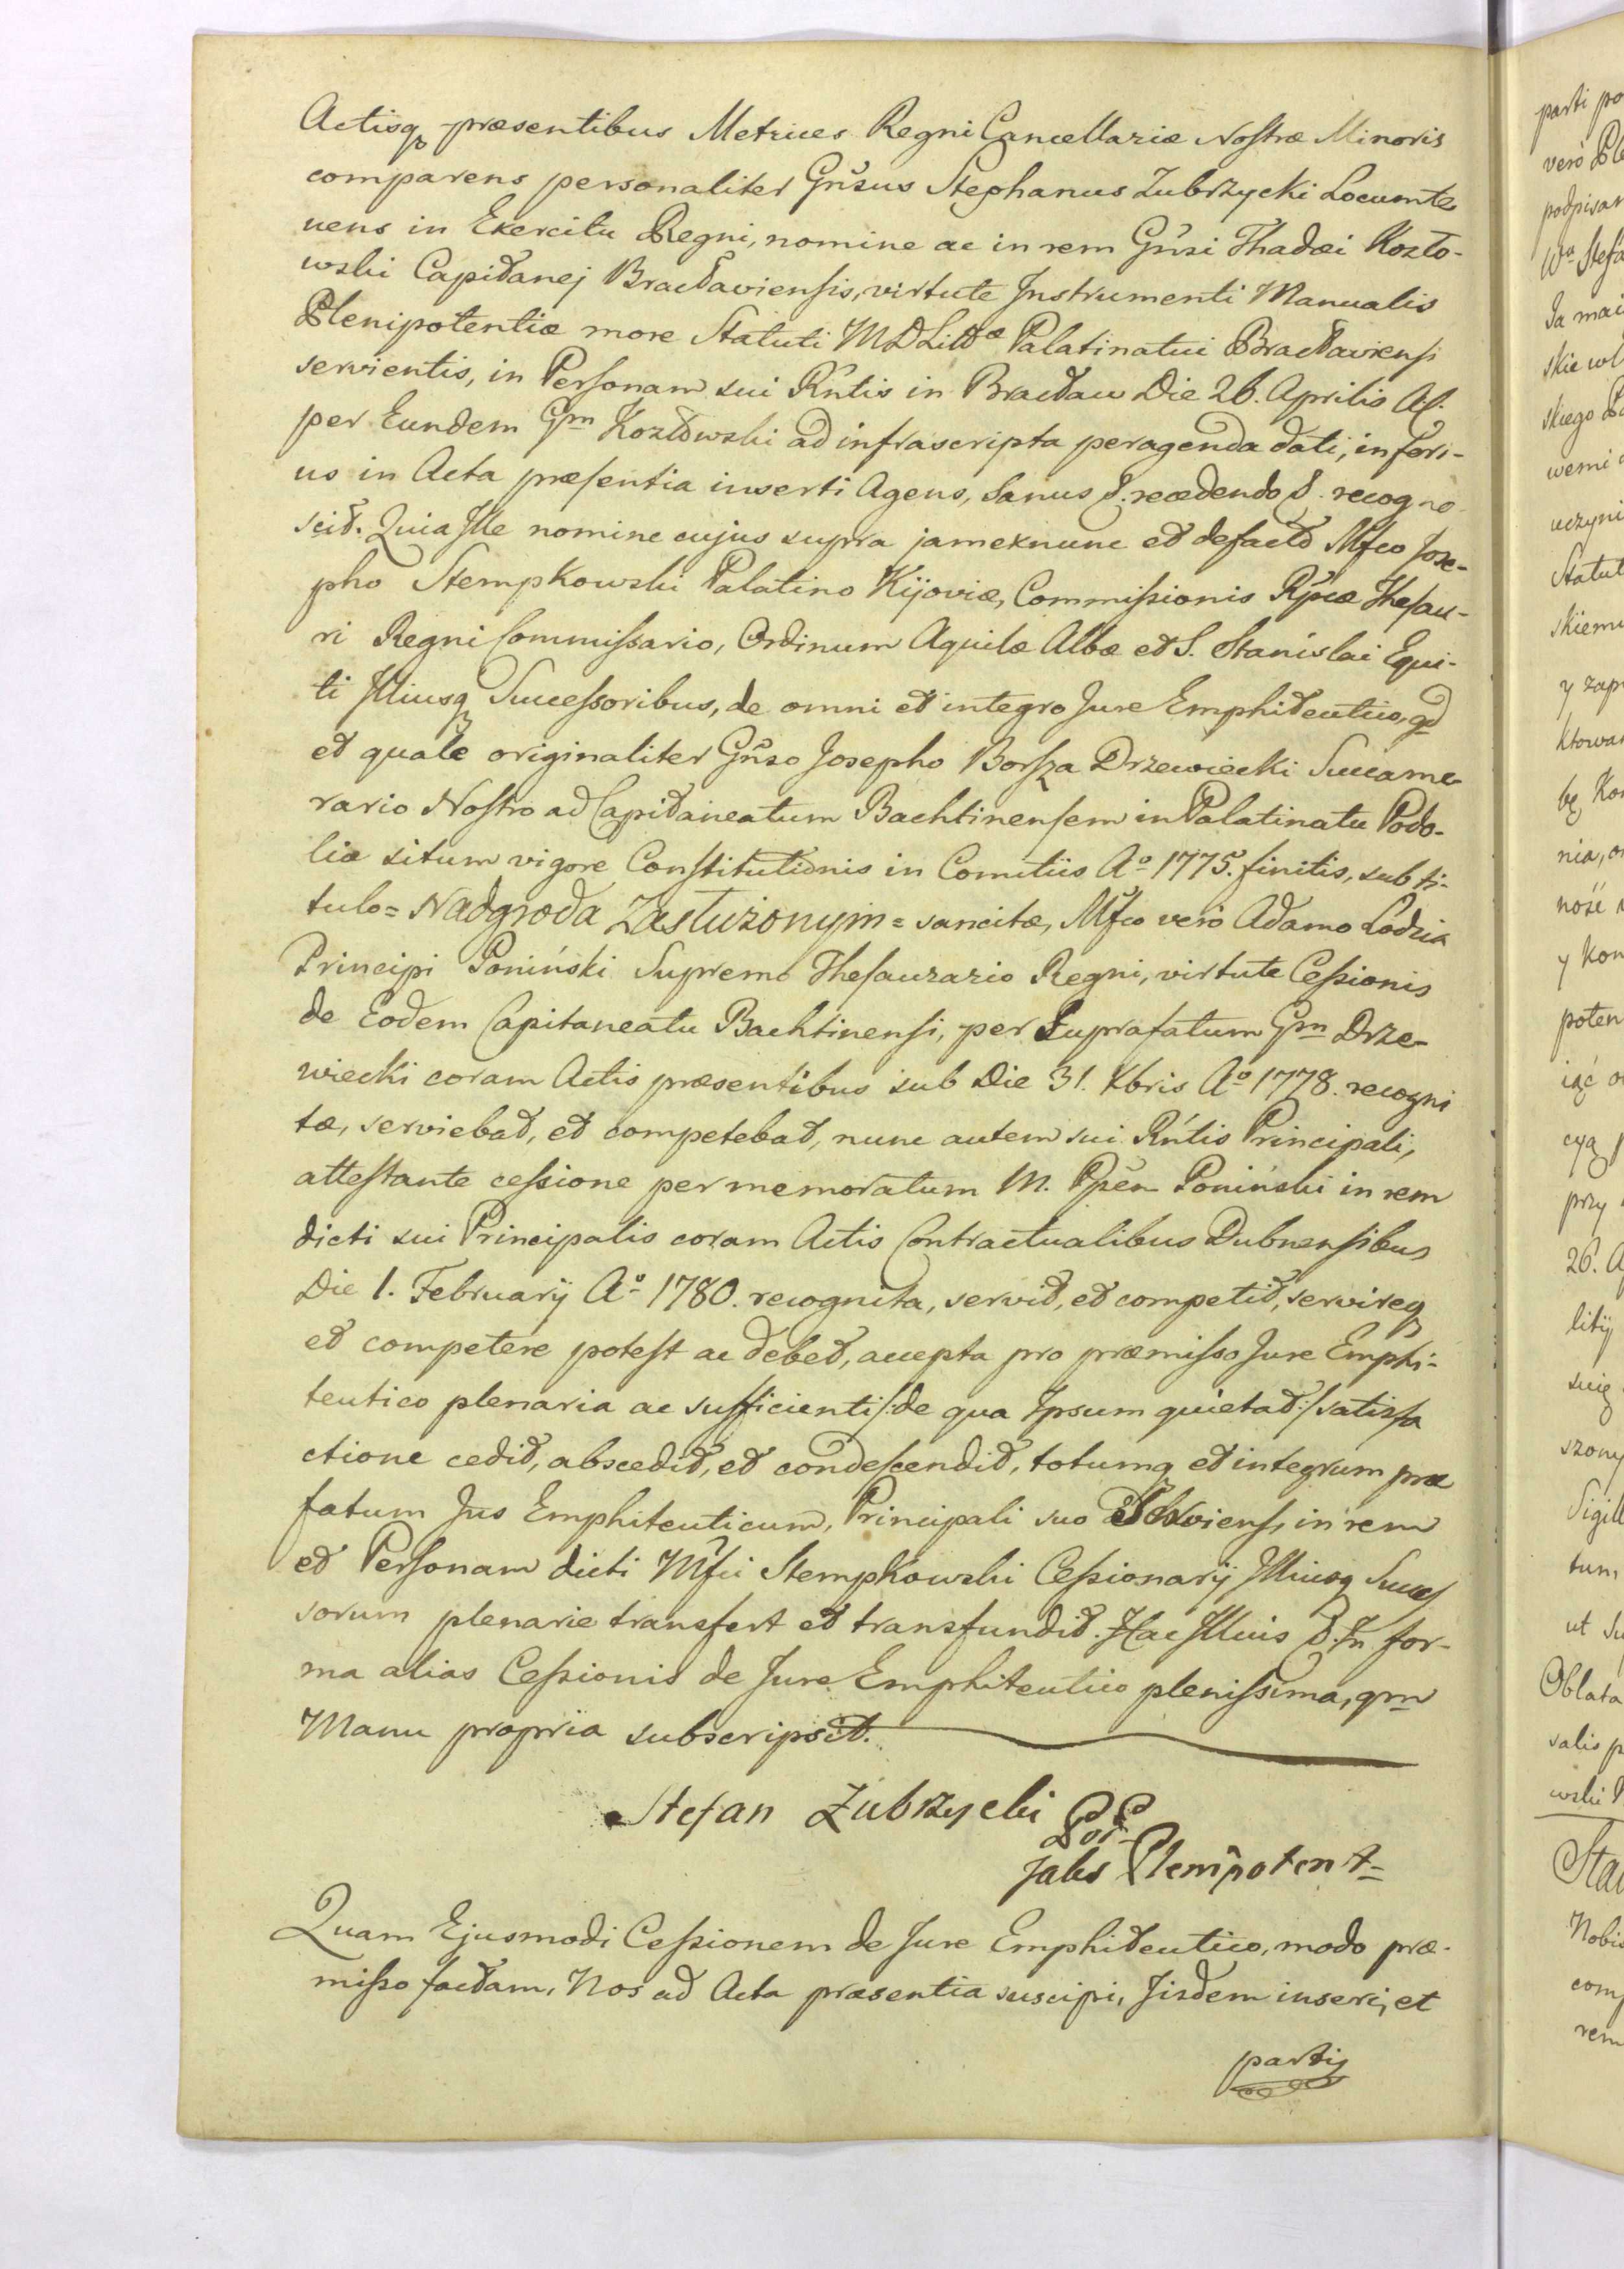 Actisq præsentibus Metrices Regni Cancellariæ Nostræ Minoris
comparens personaliter Gnsus Stephanus Zubrzycki Locumte
nens in Exercitu Regni, nomine ac in rem Gnsi Thadæi Kozło-
wski Capitanej Bracłaviensis, virtute Instrumenti Manualis
Plenipotentiæ more Statuti M D Littæ Palatinatui Bracłaviensi
servientis, in Personam sui Rntis in Bracław Die 26. Aprilis A. p.
per Eundem Gm Kozłowski ad infrascripta peragenda dati, inferi-
us in Acta præsentia inserti Agens, Sanus &. recedendo &. recogno
scit. Quia Ille nomine cujus supra jam exnunc et defacto Mfco Jose-
pho Stempkowski Palatino Kijoviæ, Commissionis Rpcæ Thesau-
ri Regni Commissario, Ordinum Aquilæ Albæ et S. Stanislai Equi-
ti Illiusq Successoribus, de omni et integro Jure Emphiteutico, qd
et quale originaliter Gnso Josepho Borsza Drzewiecki Succame
rario Nostro ad Capitaneatum Bachtinensem in Palatinatu Podo-
liæ situm vigore Constitutionis in Comitiis Ao 1775. finitis, sub ti-
tulo = Nadgroda Zasłużonym = sancitæ, Mfco verò Adamo Łodzia
Principi Poniński Supremo Thesaurario Regni, virtute Cessionis
de Eodem Capitaneatu Bachtinensi, per Suprafatum Gm Drze-
wiecki coram Actis præsentibus sub Die 31. Xbris Ao 1778. recogni
tæ, serviebat, et competebat, nunc autem sui Rntis Principali,
attestante cessione per memoratum M. Ppem Poniński in rem
dicti sui Principalis coram Actis Contractualibus Dubnensibus
Die 1. Februarij Ao 1780. recognita, servit, et competit, servireq
et competere potest ac debet, accepta pro præmisso Jure Emphi-
teutico plenaria ac sufficienti /: de qua Ipsum quietat :/ satisfa
ctione cedit, abscedit, et condescendit, totumq et integrum præ
fatum Jus Emphiteuticum, Principali suo serviens, in rem
et Personam dicti Mfci Stempkowski Cessionarij Illiusq Succes
sorum plenarie transfert et transfundit. Hac Illius &. In for-
ma alias Cessionis de Jure Emphiteutico plenissima, qm
Manu propria subscripsit.
Stefan Zubrzycki
Plenipotent
Quam Ejusmodi Cessionem de Jure Emphiteutico, modo præ-
misso factam, Nos ad Acta præsentia suscipi, Iisdem inseri, et
parti